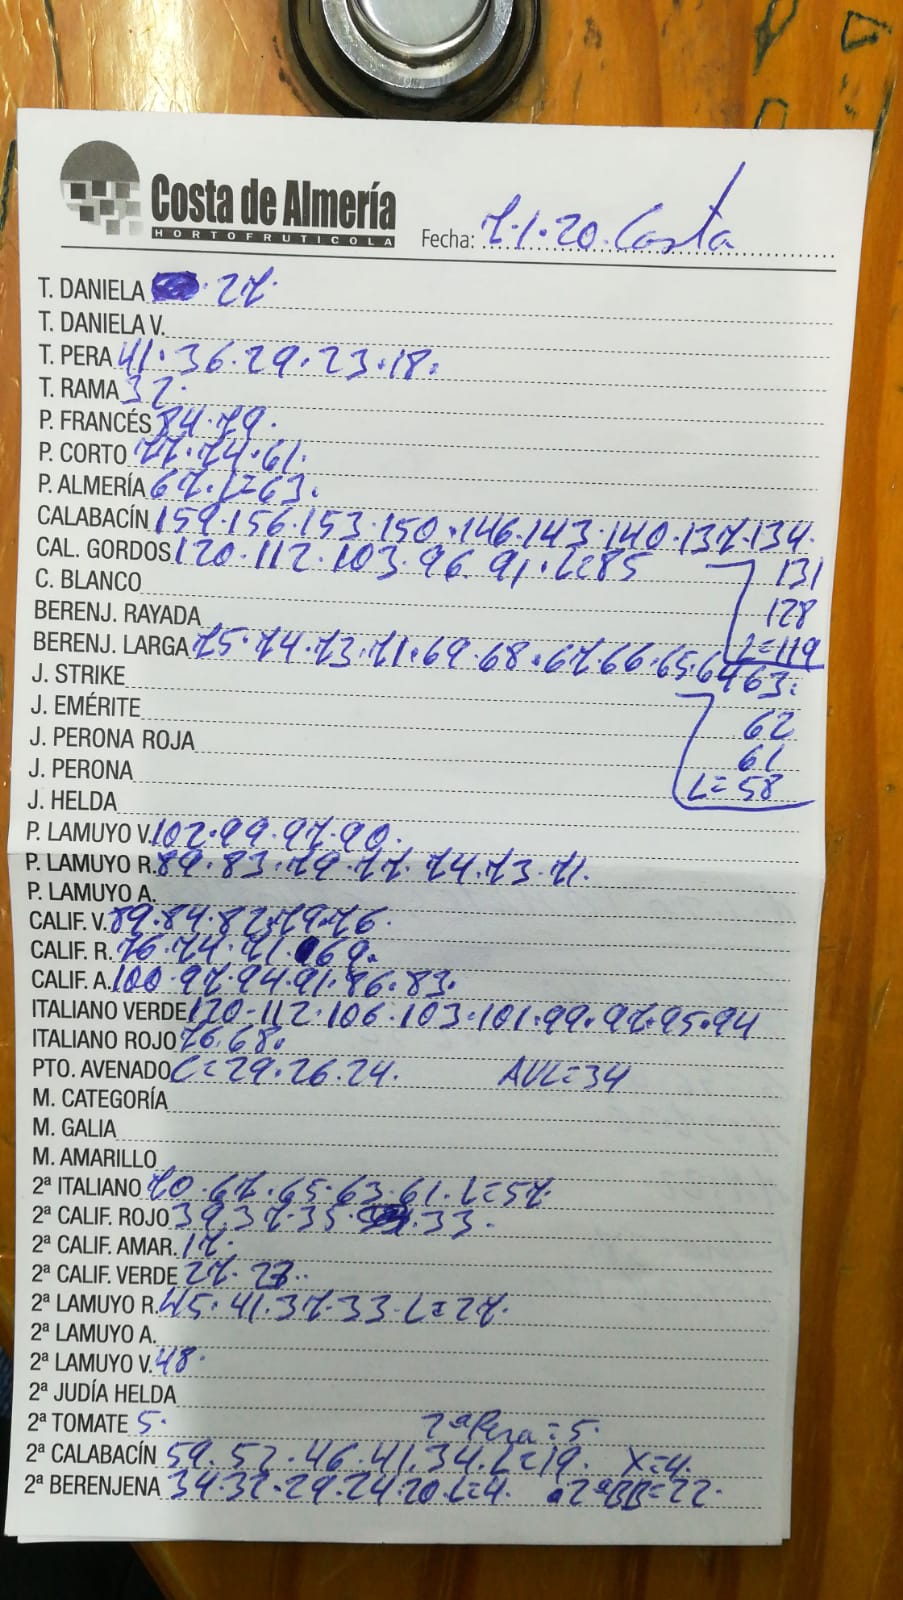 Costa de Almería
HORTOFRUTICOLA
Fecha: 7.1.20. Costa
T. DANIELA . 27.
T. DANIELA V.
T. PERA 41. 36. 29. 23. 18.
T. RAMA 32.
P. FRANCÉS 84. 79.
P. CORTO 77. 74. 61.
P. ALMERÍA 67. L=63.
CALABACÍN 159. 156. 153. 150. 146. 143. 140. 137. 134.
131
128
L=119
CAL. GORDOS 120. 112. 103. 96. 91. L=85
C. BLANCO
BERENJ. RAYADA
BERENJ. LARGA 75. 74. 73. 71. 69. 68. 67. 66. 65. 64 63.
62
61
L=58
J. STRIKE
J. EMÉRITE
J. PERONA ROJA
J. PERONA
J. HELDA
P. LAMUYO V. 102. 99. 97. 90.
P. LAMUYO R. 89. 83. 79. 77. 74. 73. 71.
P. LAMUYO A.
CALIF. V. 89. 84. 82. 79. 76.
CALIF. R. 76. 74. 71. 69.
CALIF. A. 100. 97. 94. 91. 86. 83.
ITALIANO VERDE 120. 112. 106. 103. 101. 99. 97. 95. 94
ITALIANO ROJO 76. 68.
PTO. AVENADO C=29. 26. 24. AVL=34
M. CATEGORÍA
M. GALIA
M. AMARILLO
2ª ITALIANO 70. 67. 65. 63. 61. L=57.
2ª CALIF. ROJO 39. 37. 35. 33.
2ª CALIF. AMAR. 17.
2ª CALIF. VERDE 27. 23.
2ª LAMUYO R. 45. 41. 37. 33. L=27.
2ª LAMUYO A.
2ª LAMUYO V. 48.
2ª JUDÍA HELDA
2ª TOMATE 5. 2ª Pera=5.
2ª CALABACÍN 59. 52. 46. 41. 34. L=19. X=4.
2ª BERENJENA 34. 32. 29. 24. 20. L=4. 2ªBB=22.